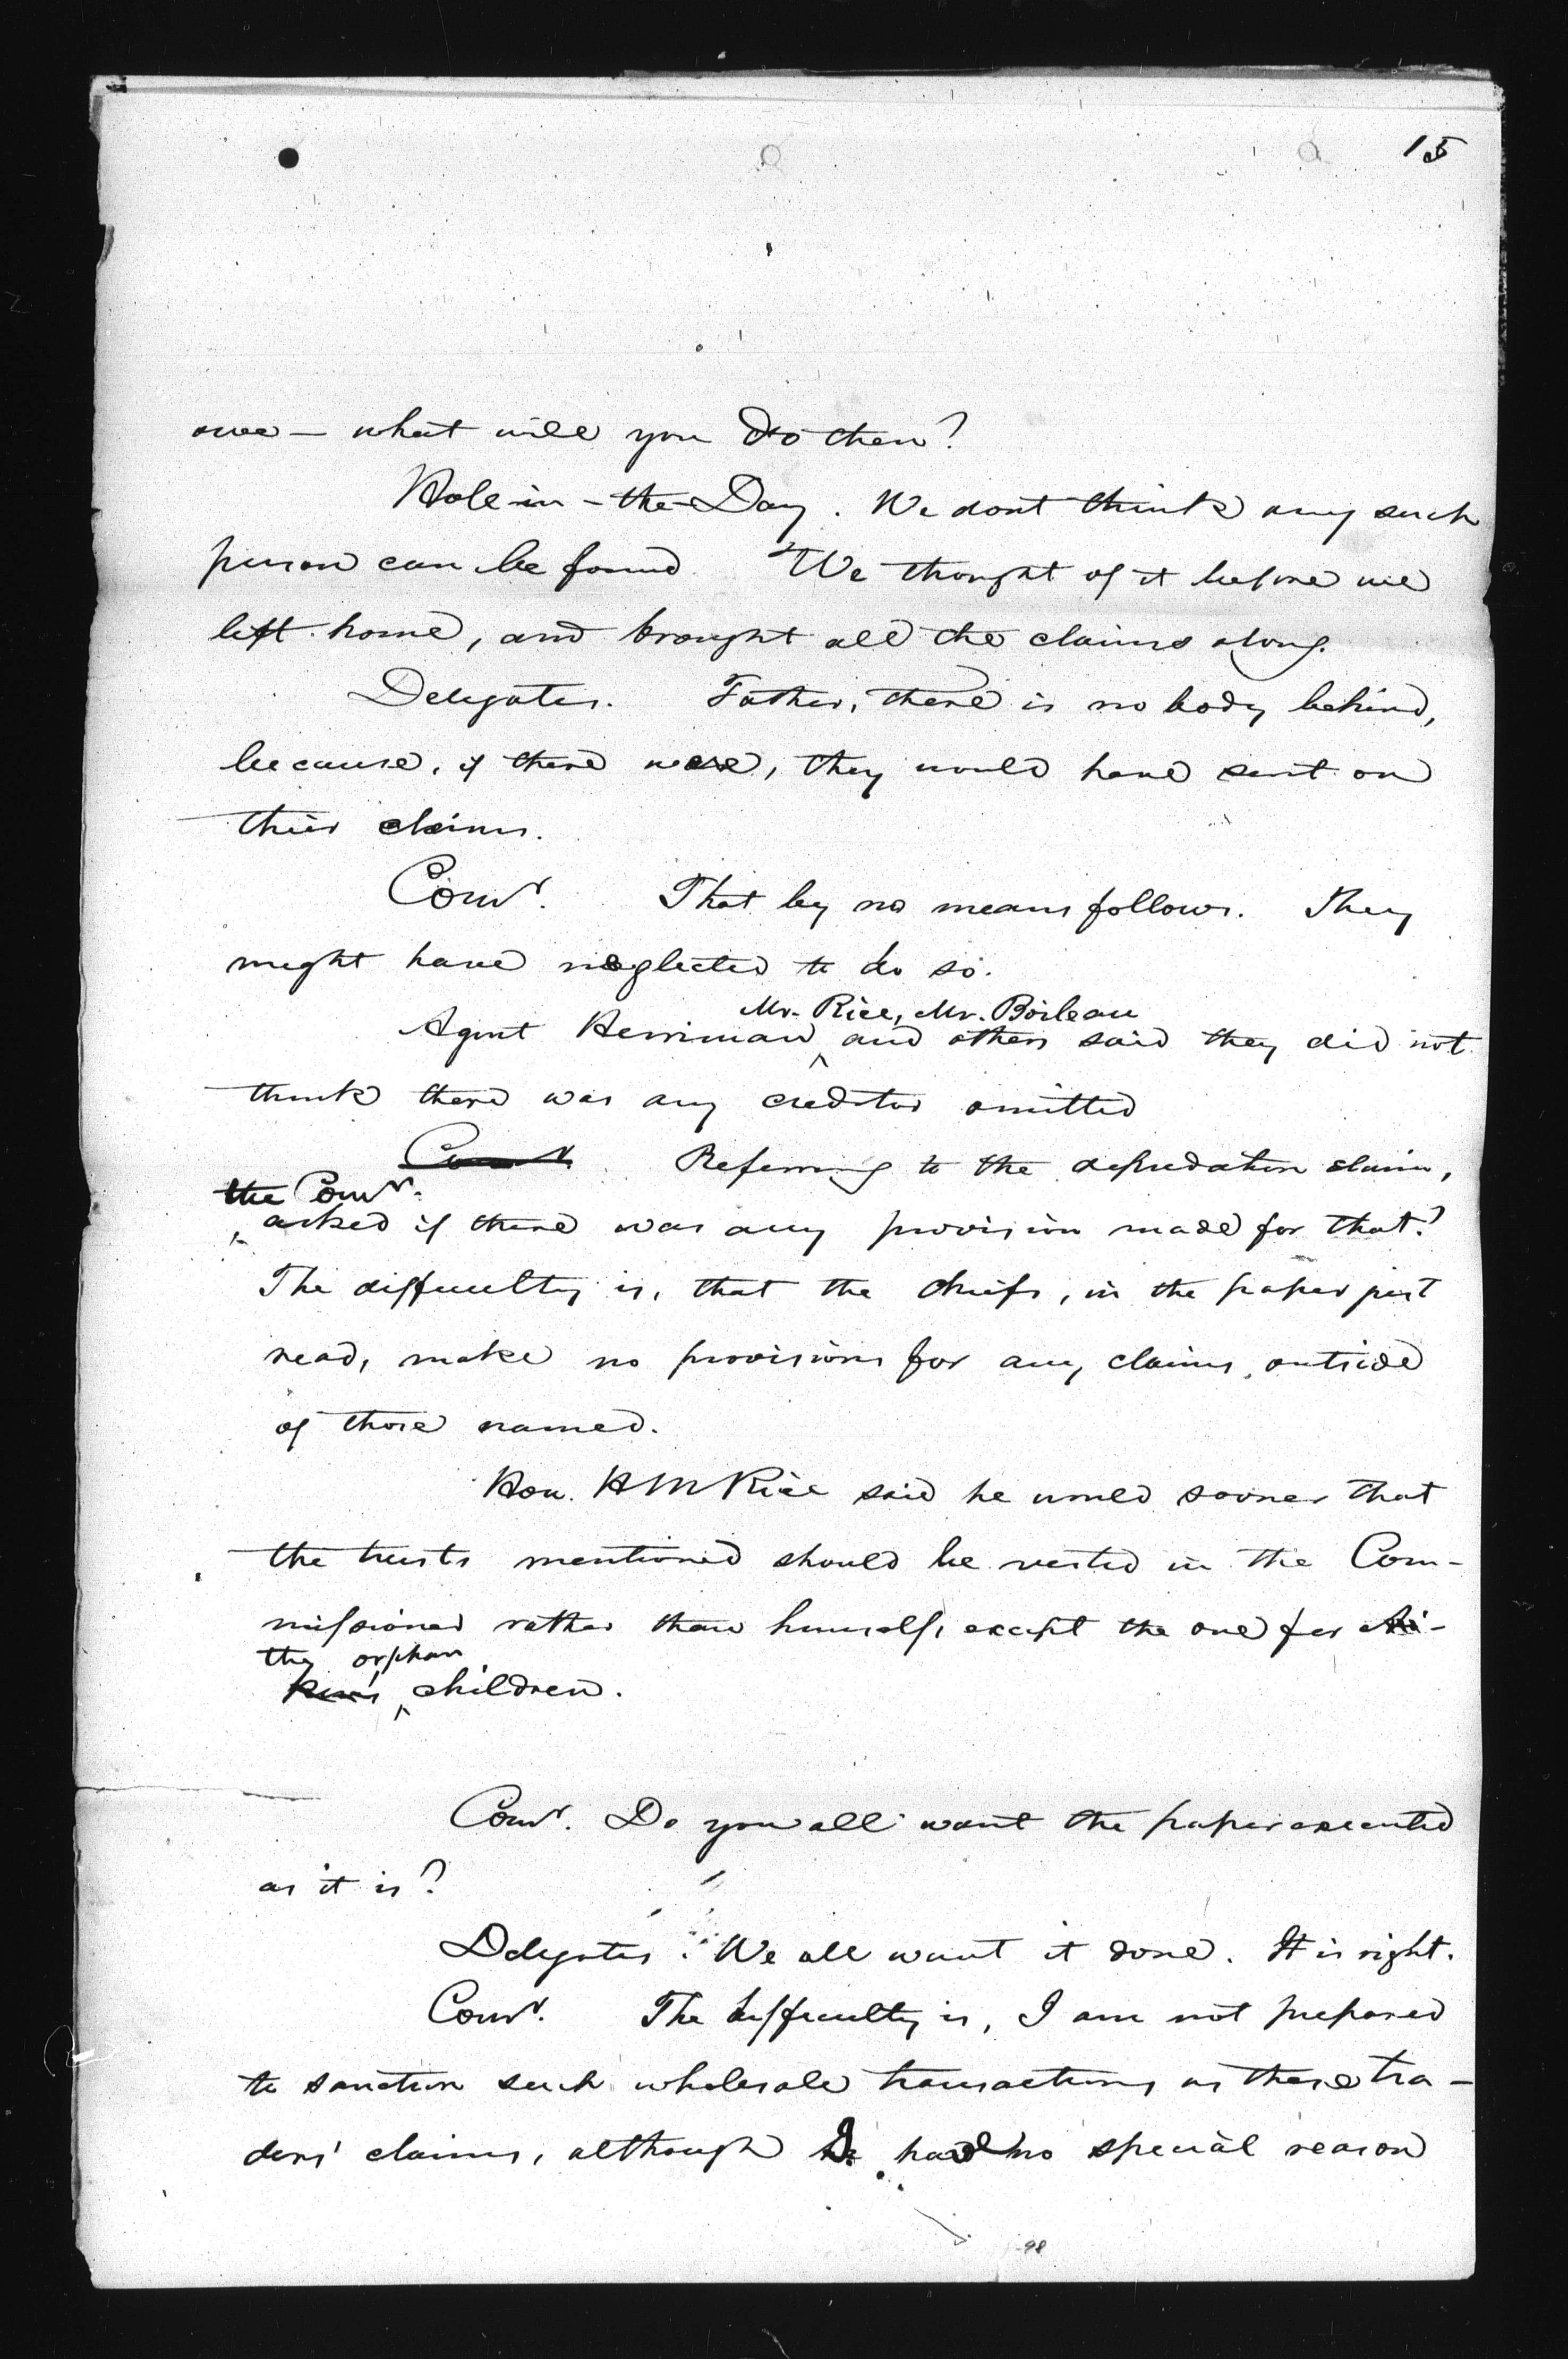 15
owe — what will you do then?
Hole-in-the-Day. We dont think any such
person can be found. We thought of it before we
left home, and brought all the claims along.
Delegates. Father, there is no body behind,
because, if there were, they would have sent on
their claims.
Comr. That by no means follows. They
might have neglected to do so.
Mr. Rice, Mr. Boileau
Agent Herriman ^ and others said they did not
think there was any creditor omitted
Comr. Referring to the depredation claim,
the Comr.
^ asked if there was any provision made for that?
The difficulty is, that the chiefs, in the paper just
read, make no provisions for any claims, outside
of those named.
Hon. H M Rice said he would sooner that
the trusts mentioned should be vested in the Com-
missioner rather than himself, except the one for
the orphan
^ children.
Comr. Do you all want the paper executed
as it is?
Delegates. We all want it done. It is right.
Comr. The difficulty is, I am not prepared
to sanction such wholesale transactions as these tra-
ders' claims, although I have no special reason
98